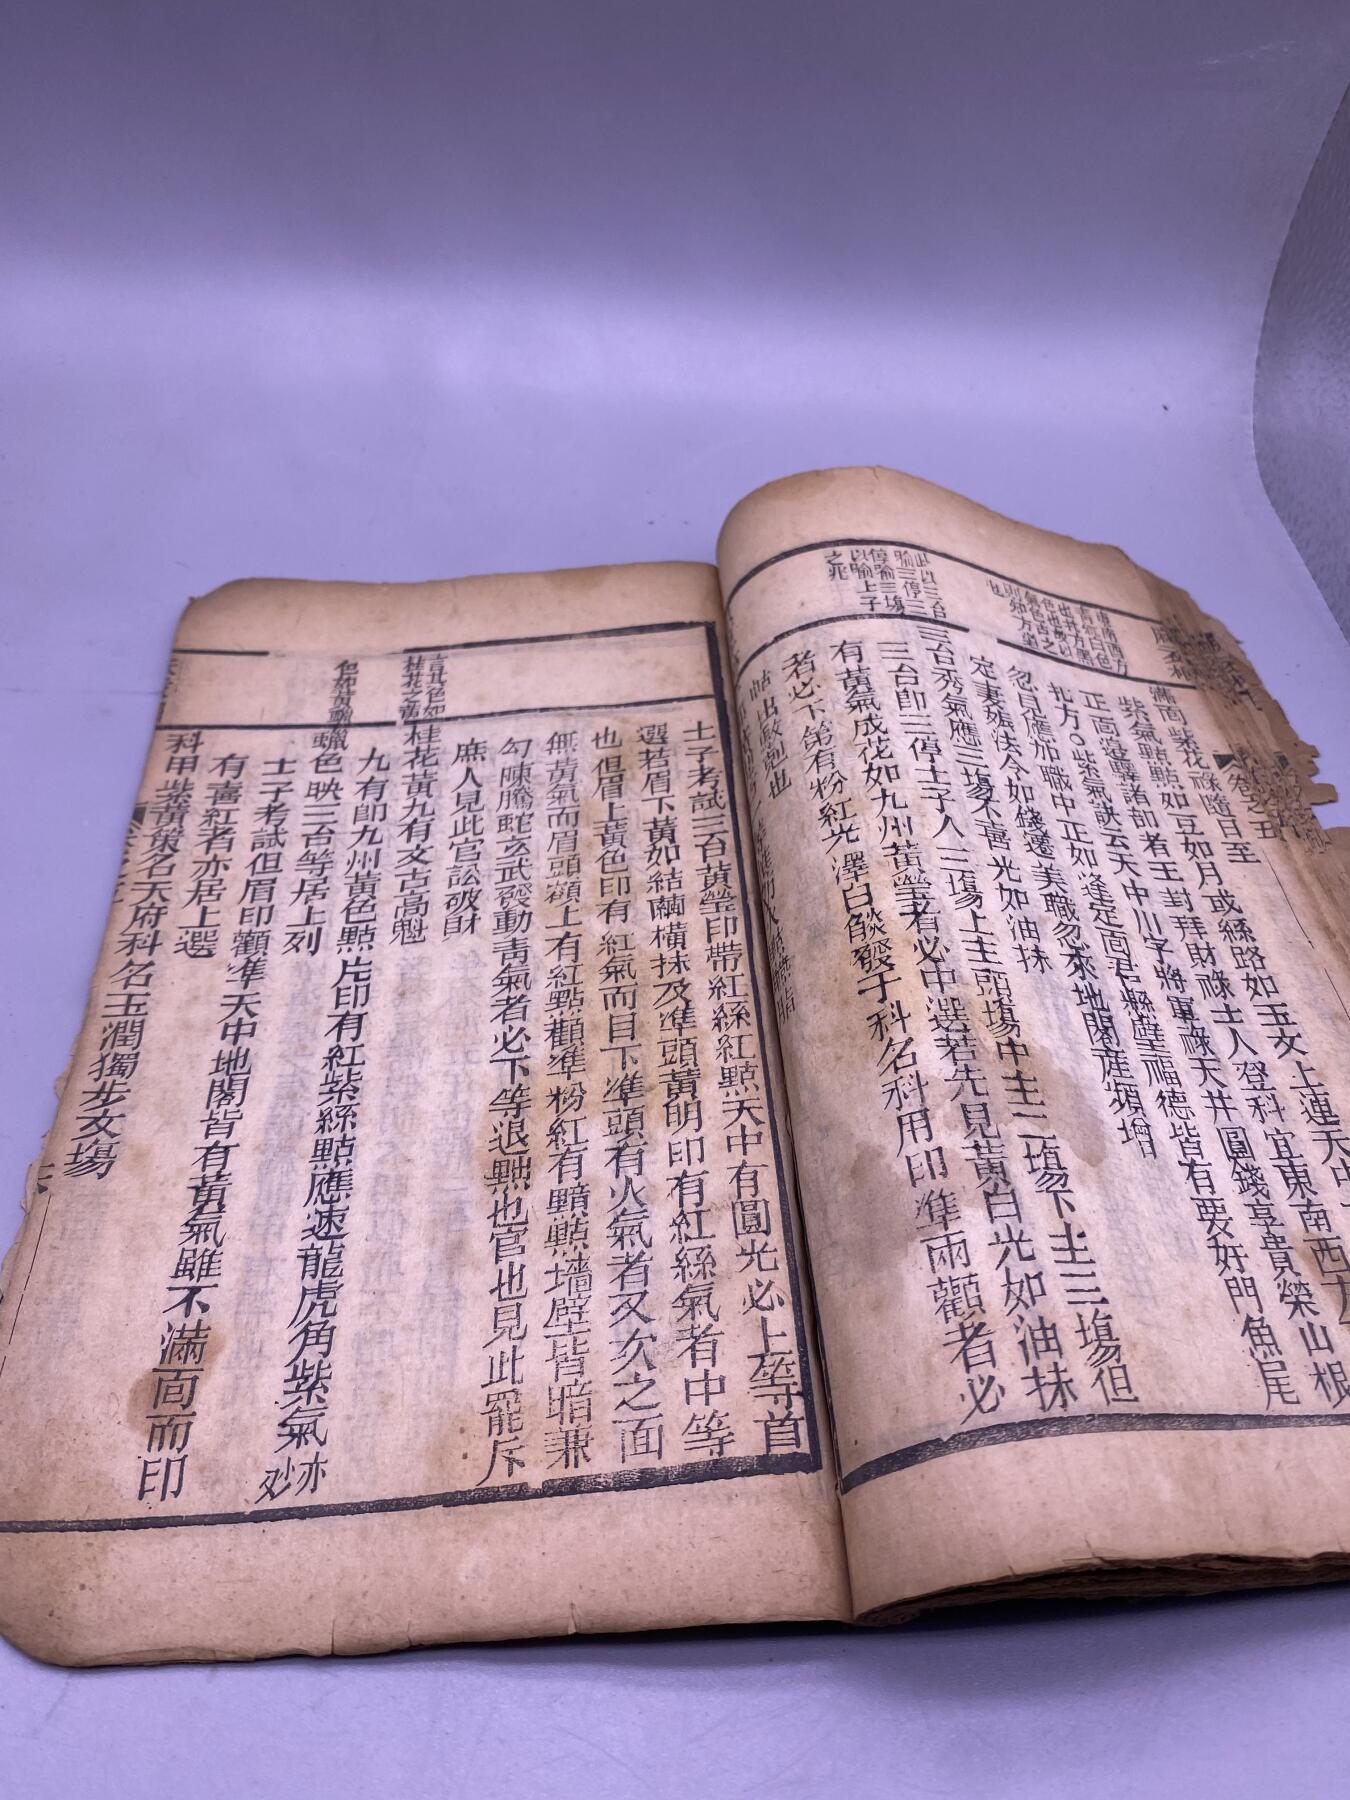 卷之五
滿面紫花祿隨日至
紫氣點點如豆如月或絲路如玉文上連天中
正面
諸部者王封拜財祿士人登科宜東南西
北方○紫氣訣云天中川字將軍祿天井圓錢享貴榮山根
忽自應加職中正如逢定面君懸壁福德皆有要好門魚尾
定妻娠法令如錢遷美職忽來地閣産須增
三台秀氣應三塲不喜光如油抹
三台即三停士子入三塲上主頭塲中主二塲下主三塲但
有黃氣成花如九州黃瑩者必中選若先見黃白光如油抹
者必下第有粉紅光澤白
發于科名科用印準兩顴者必
此以三台
喻三停三
停喻三塲
以喻士子
之兆
士子考試三台黃瑩印帶紅絲紅㸃天中有圓光必上等首
選若眉下黃如結繭橫抹及準頭黃明印有紅絲氣者中等
也但眉上黃色印有紅氣而目下準頭有火氣者又次之面
無黃氣而眉頭額上有紅㸃顴準粉紅有黯㸃墻壁皆暗兼
勾陳騰蛇玄武發動靑氣者必下等退黜也官也見此罷斥
庶人見此官訟破財
言其色如
桂花之黃
桂花黃九有文古高魁
九有卽九州黃色㸃㸃印有紅紫絲㸃應速龍虎角紫氣亦妙
色如黃蠟
蠟色映三台等居上列
士子考試但眉印顴準天中地閣皆有黃氣雖不滿面而印
有喜紅者亦居上選
科甲紫黃策名天府科名玉潤獨步文塲